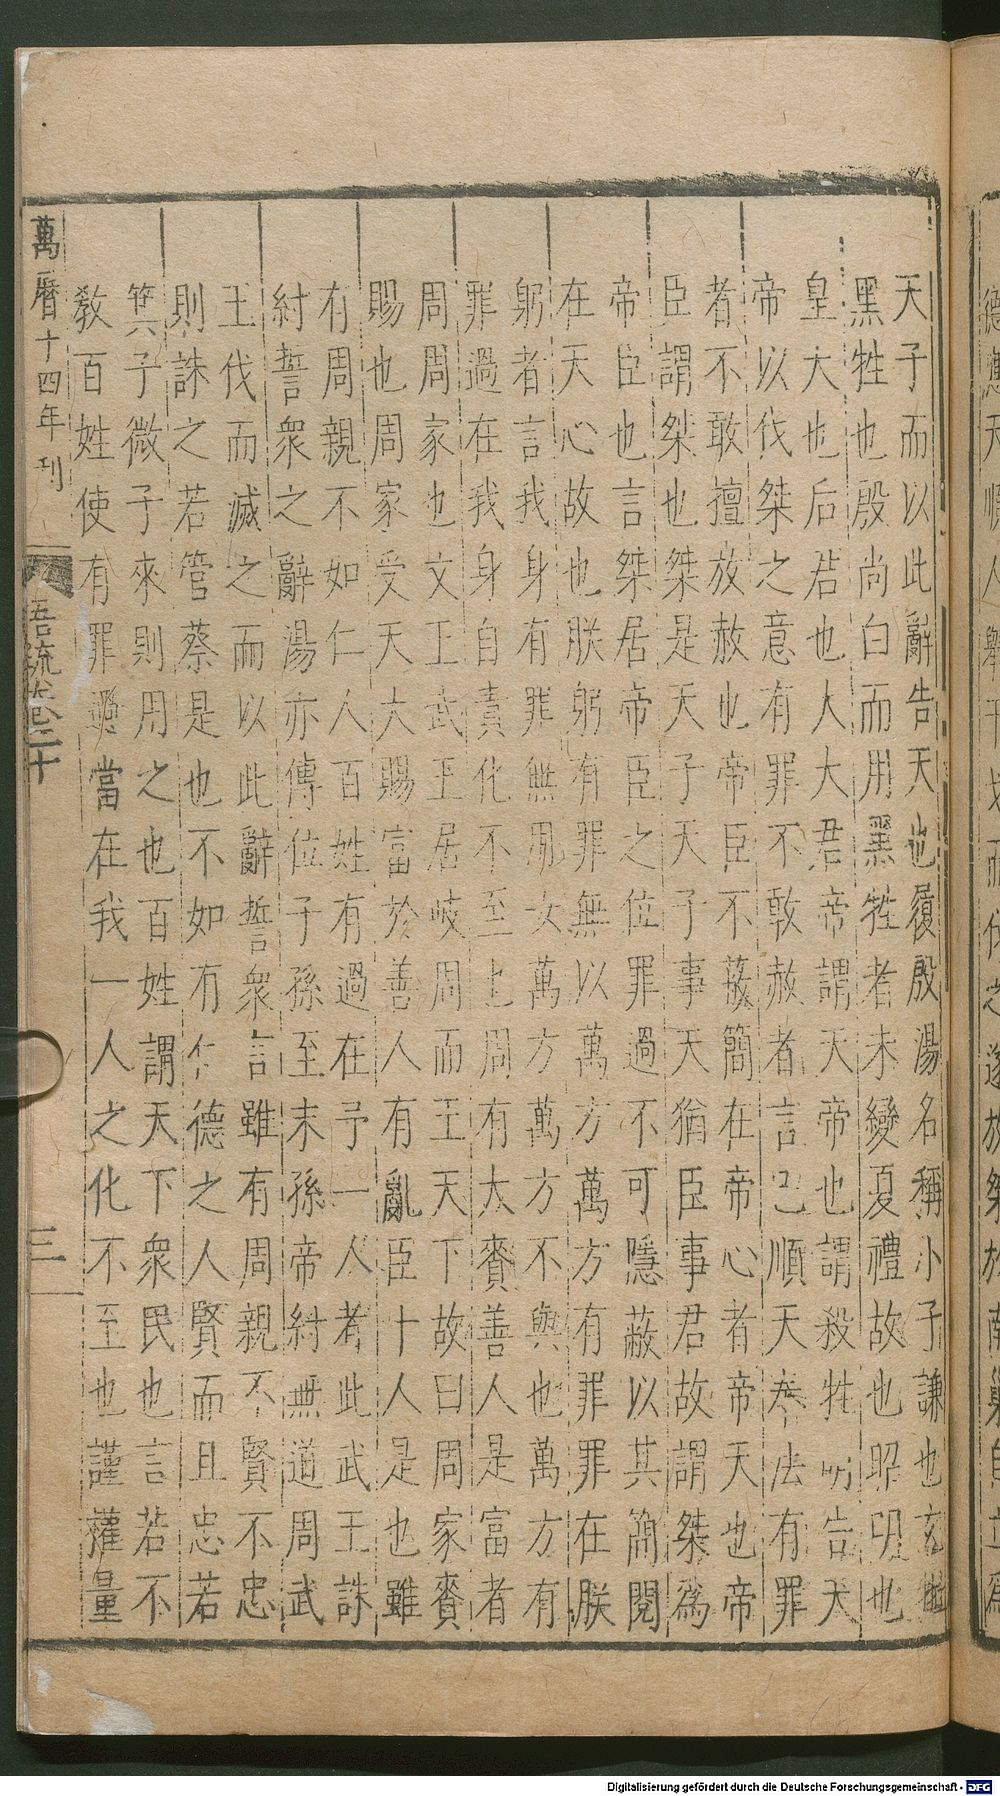 天子而以此辭告天也履殷湯名稱小子謙也玄牡
黑牲也殷尚白而用黑牲者未變夏禮故也昭明也
皇大也后君也人大君帝謂天帝也謂殺牲明告天
帝以伐桀之意有罪不敢赦者言己順天奉法有罪
者不敢擅放赦也帝臣不蔽簡在帝心者帝天也帝
臣謂桀也桀是天子天子事天猶臣事君故謂桀爲
帝臣也言桀居帝臣之位罪過不可隱蔽以其簡閱
在天心故也朕躬有罪無以萬方萬方有罪罪在朕
躬者言我身有罪無用汝萬方萬方不與也萬方有
罪過在我身自責化不至也周有大賚善人是富者
周周家也文王武王居岐周而王天下故曰周家賚
賜也周家受天大賜富於善人有亂臣十人是也雖
有周親不如仁人百姓有過在予一人者此武王誅
紂誓衆之辭湯亦傳位子孫至末孫帝紂無道周武
王伐而滅之而以此辭誓衆言雖有周親不賢不忠
則誅之若管蔡是也不如有仁德之人賢而且忠若
箕子微子來則用之也百姓謂天下衆民也言若不
教百姓使有罪過當在我一人之化不至也謹權量
萬曆十四年刊
吾疏卷二十
三
Digitalisierung gefördert durch die Deutsche Forschungsgemeinschaft - DFG